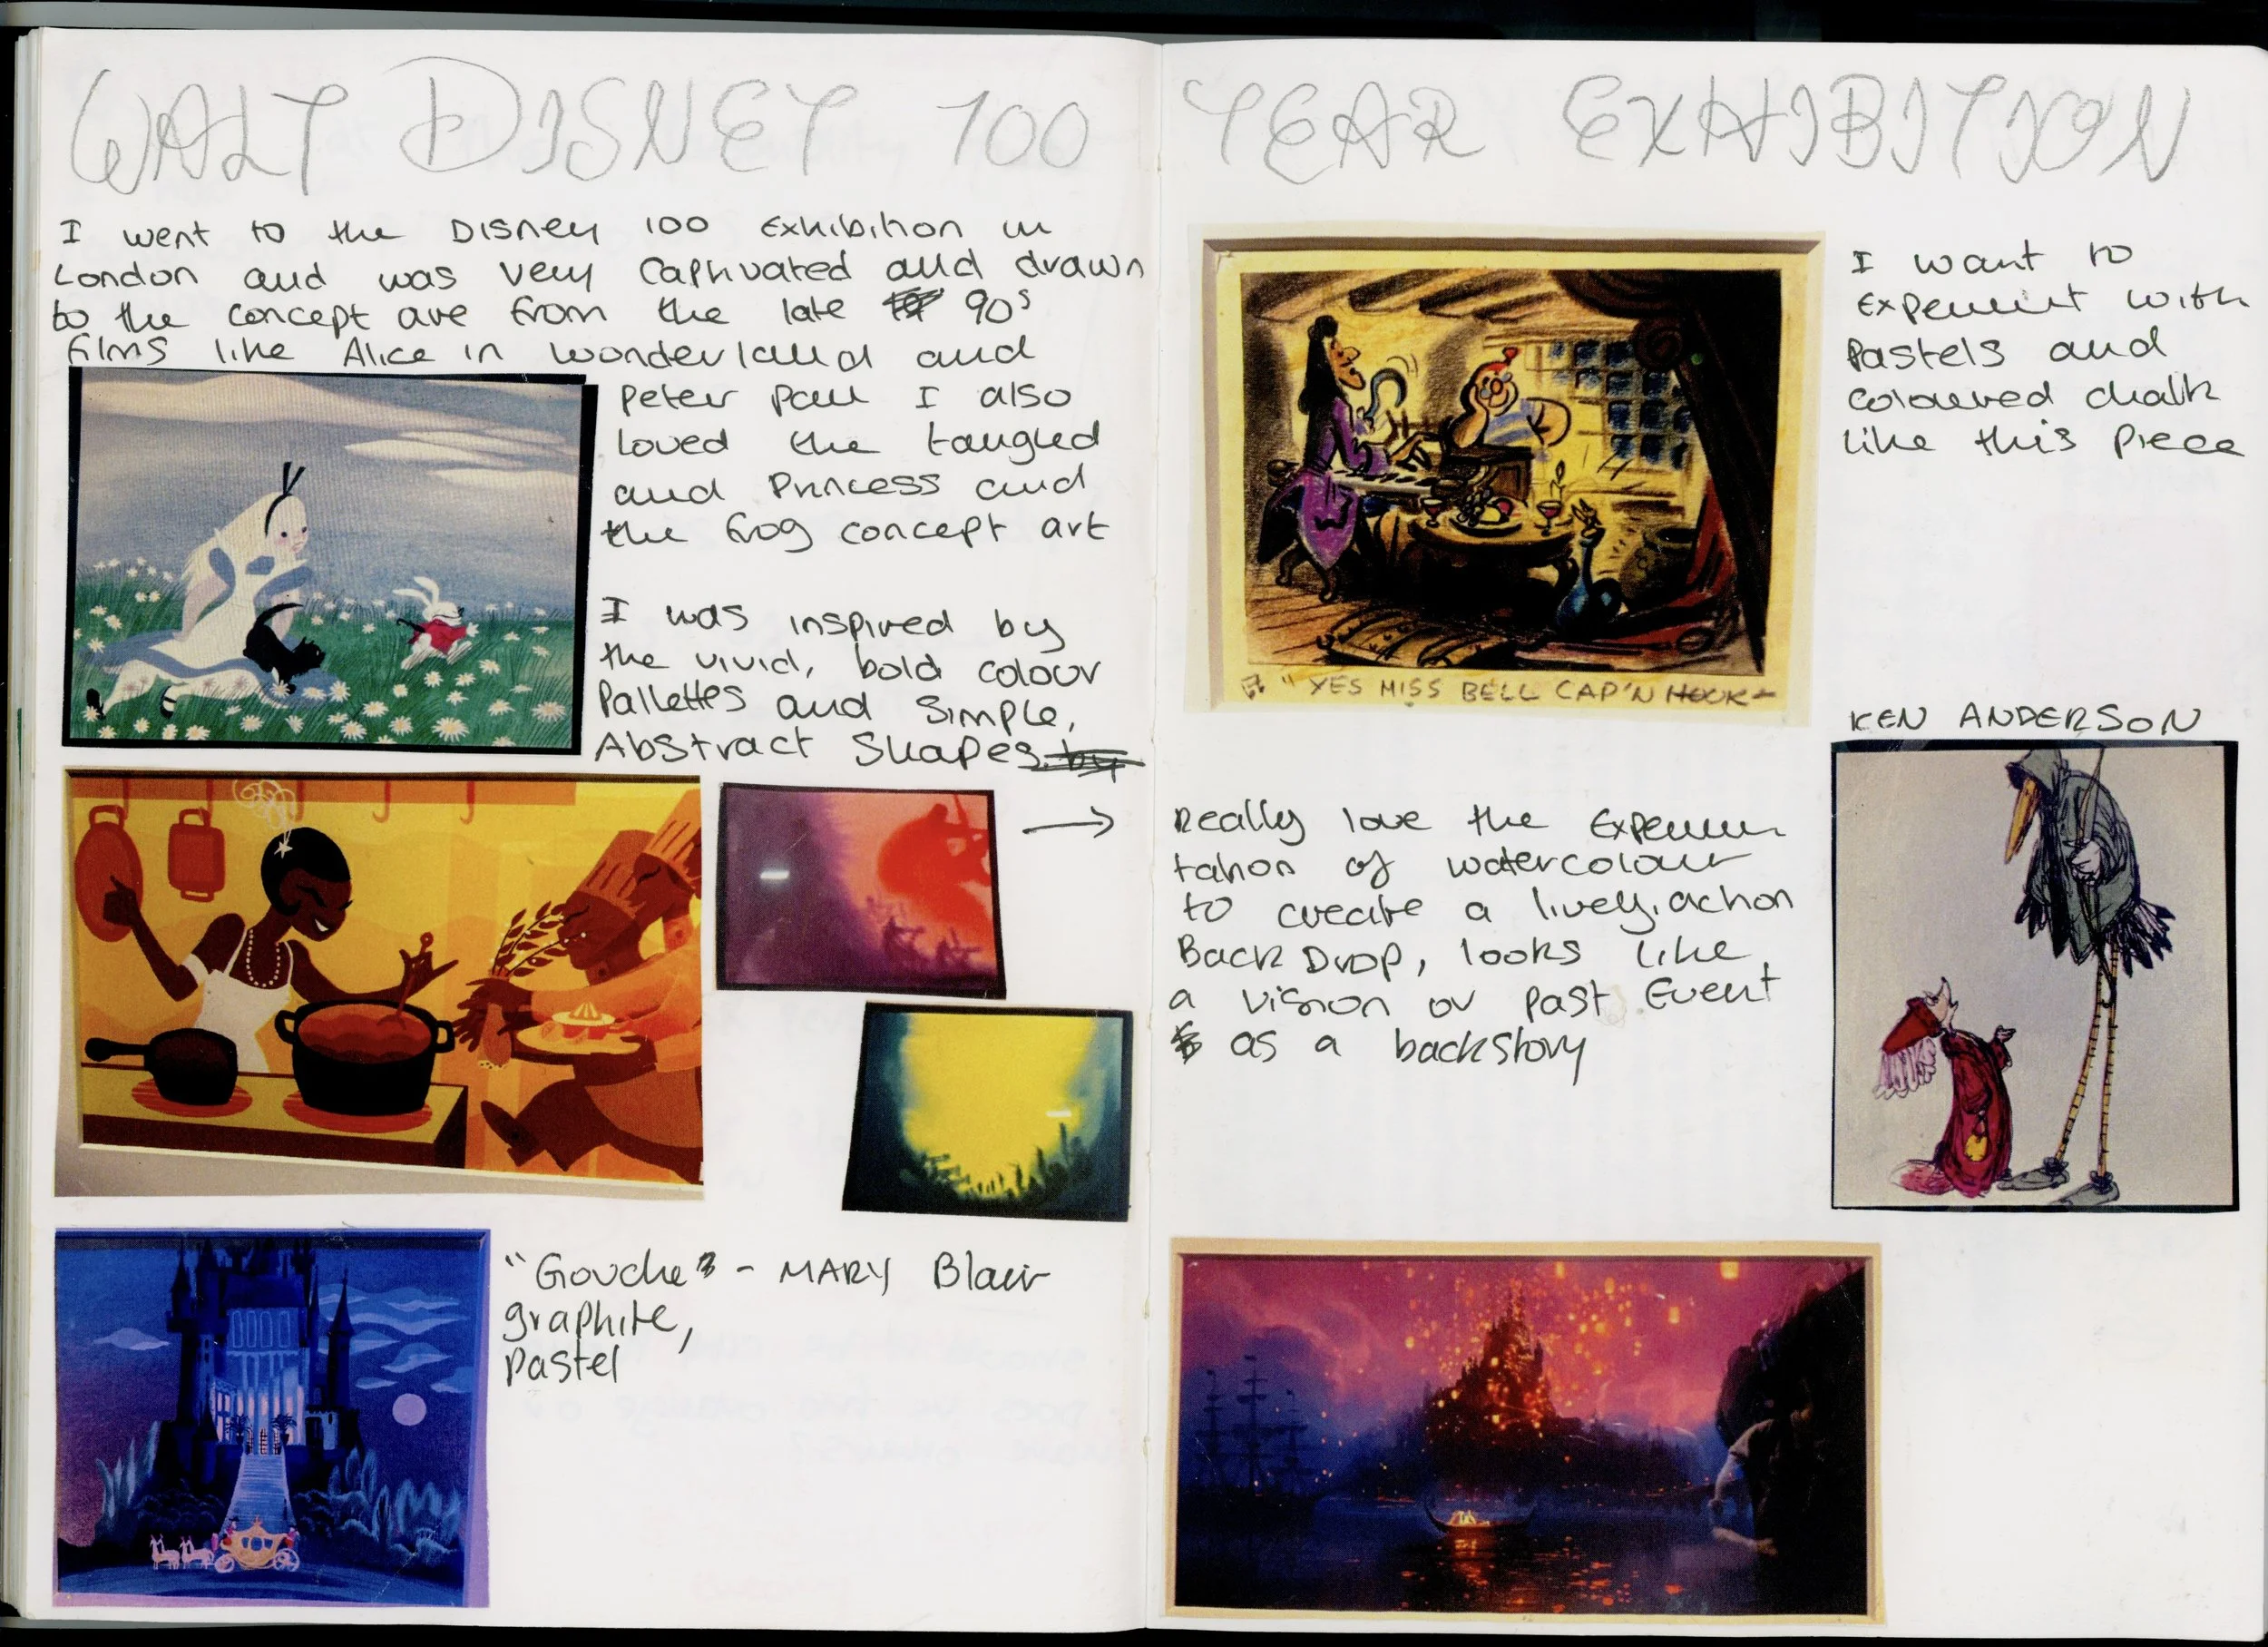 WALT DISNEY 100 YEAR EXHIBITION
I went to the Disney 100 Exhibition in
London and was very Captivated and drawn
to the concept are from the late 90s
films like Alice in wonderland and
Peter Pan I also
loved the tangled
and Princess and
the frog concept art
I was inspired by
the vivid, bold colour
Pallettes and Simple,
Abstract Shapes.
"Gouche" - MARY Blair
graphite,
Pastel
I want to
Experiment with
Pastels and
coloured chalk
like this piece
"YES MISS BELL CAP'N HOOK-
KEN ANDERSON
Really love the Experimen
tation of watercolour
to create a lively, action
BackDrop, looks like
a vision or past Event
as a backstory